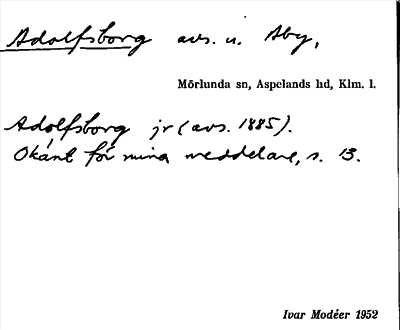 Adolfsborg avs. u. Åby,
Mörlunda sn, Aspelands hd, Klm. l.
Adolfsborg jr (avs. 1885).
Okänt för mina meddelare, s. 13.
Ivar Modéer 1952